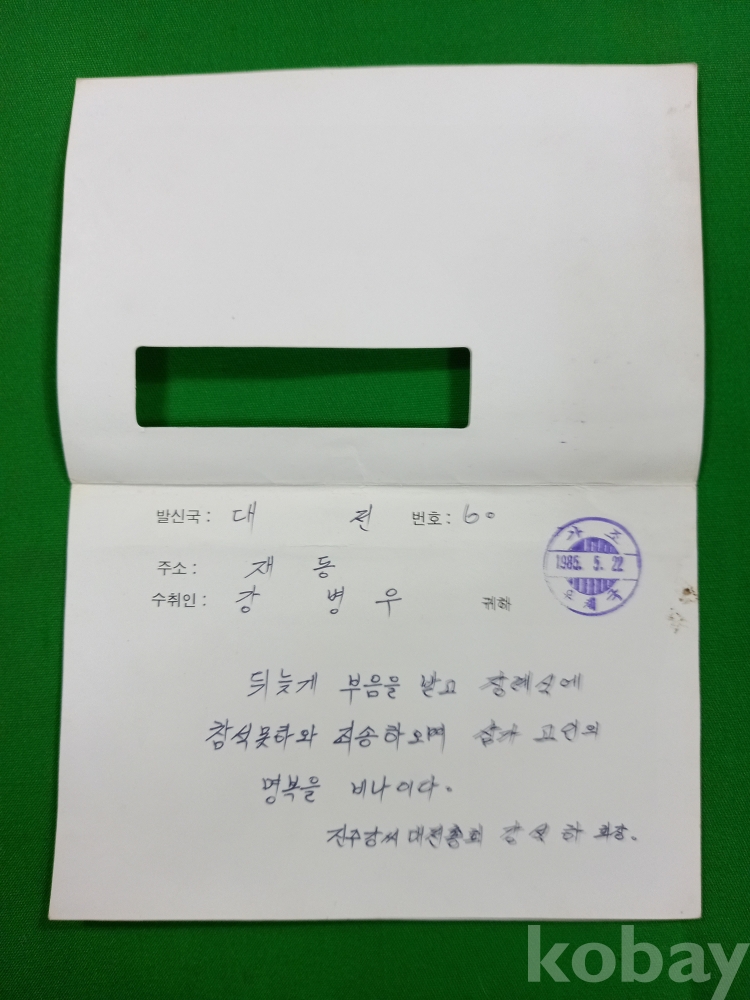 발신국 : 대 전 번호 : 60
가조
1985. 5. 22
우체국
주소 : 재 동
수취인 : 강 병 우 귀하
뒤늦게 부음을 받고 장례식에
참석못하와 죄송하오며 삼가 고인의
명복을 비나이다.
진주강씨 대전종회 강 석 하 회장.
kobay